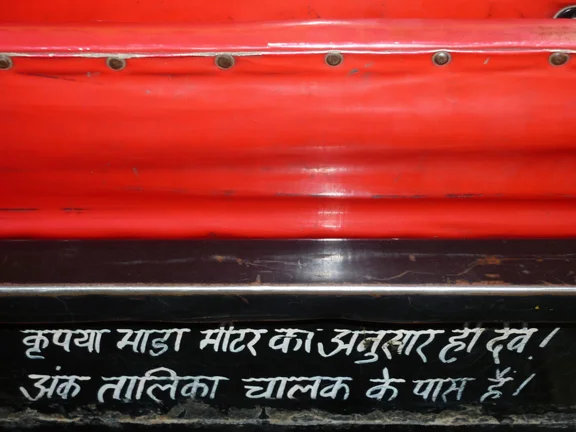 कृपया भाडा मीटर के अनुसार ही देवे !
अंक तालिका चालक के पास है !